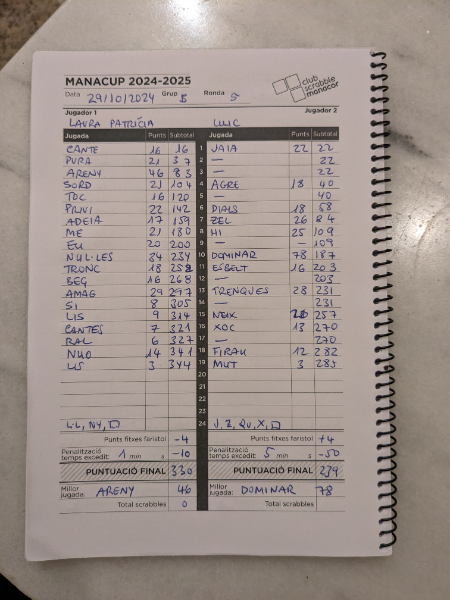 MANACUP 2024-2025
Data 29/10/2024 Grup 5 Ronda 5
club scrabble manacor
Jugador 1 Jugador 2
LAURA PATRÍCIA LLUC
Jugada Punts Subtotal Jugada Punts Subtotal
CANTE 16 16 1 VAIA 22 22
PURA 21 37 2 — 22
ARENY 46 83 3 — 22
SORD 21 104 4 AGRE 18 40
TOC 16 120 5 — 40
PRIVI 22 142 6 DIALS 18 58
ADEIA 17 159 7 ZEL 26 84
ME 21 180 8 HI 25 109
EU 20 200 9 — — 109
NUL·LES 34 234 10 DOMINAR 78 187
TRONC 18 252 11 ESBELT 16 203
BEG 16 268 12 203
AMAG 29 297 13 TRENQUES 28 231
SI 8 305 14 — 231
LIS 9 314 15 NEIX 257
CANTES 7 321 16 XOC 13 270
RAL 6 327 17 — 270
NUO 14 341 18 FIRAU 12 282
US 3 344 19 MUT 3 285
20
21
22
23
L·L, NY, □ 24 J, Z, QU, X, □
Punts fitxes faristol -4 Punts fitxes faristol +4
Penalització temps excedit: 1 min s -10 Penalització temps excedit: 5 min s -50
PUNTUACIÓ FINAL 330 PUNTUACIÓ FINAL 239
Millor jugada: ARENY 46 Millor jugada: DOMINAR 78
Total scrabbles 0 Total scrabbles